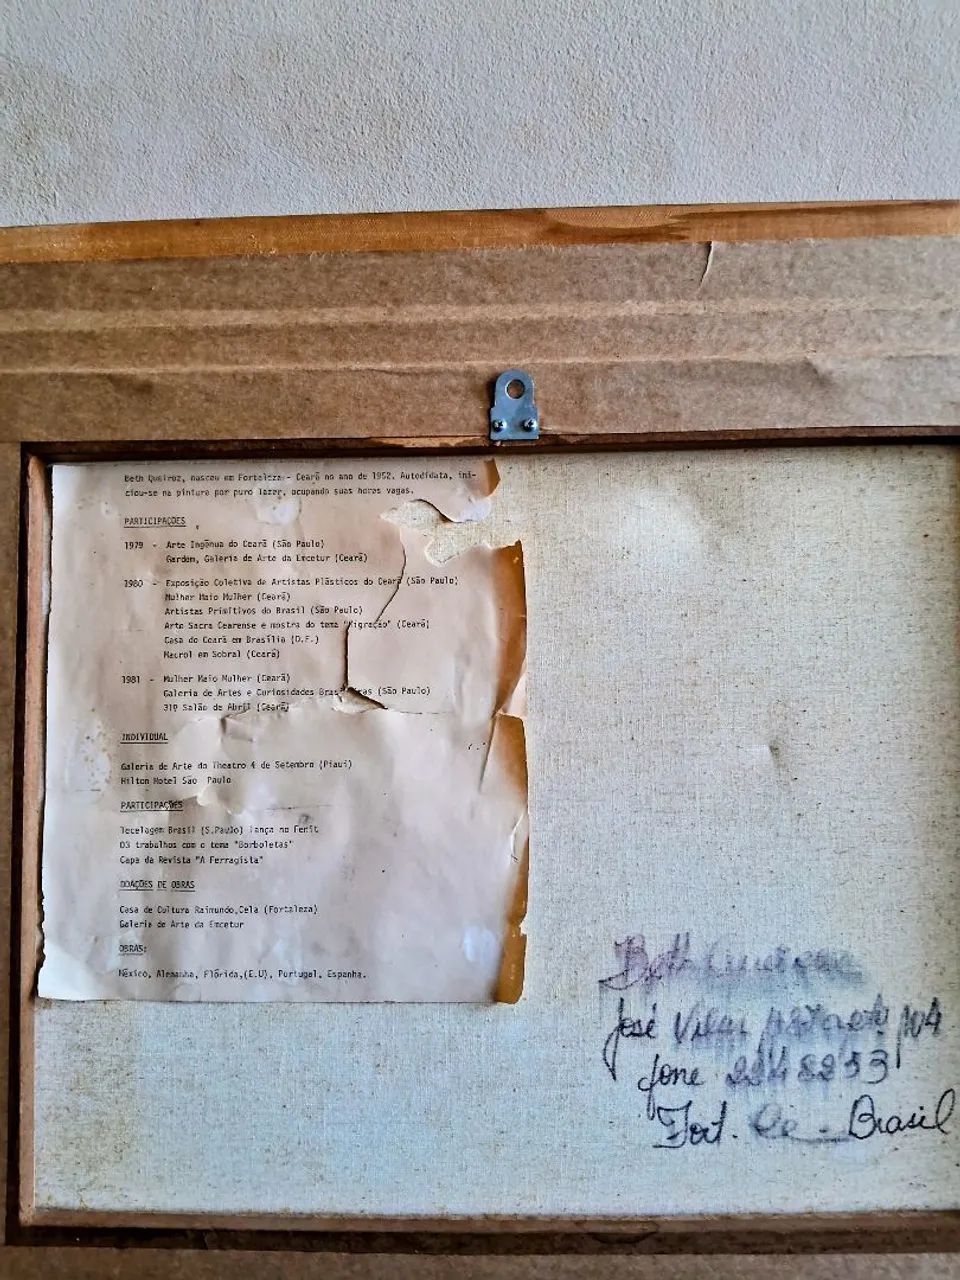 Beth Queiroz, nasceu em Fortaleza - Ceará no ano de 1952. Autodidata, ini-
ciou-se na pintura por puro lazer, ocupando suas horas vagas.
PARTICIPAÇÕES
1979 - Arte Ingênua do Ceará (São Paulo)
Gardem, Galeria de Arte da Emcetur (Ceará)
1980 - Exposição Coletiva de Artistas Plásticos do Ceará (São Paulo)
Mulher Maio Mulher (Ceará)
Artistas Primitivos do Brasil (São Paulo)
Arte Sacra Cearense e mostra do tema "Migração" (Ceará)
Casa do Ceará em Brasília (D.F.)
Macrol em Sobral (Ceará)
1981 - Mulher Maio Mulher (Ceará)
Galeria de Artes e Curiosidades Brasileiras (São Paulo)
31º Salão de Abril (Ceará)
INDIVIDUAL
Galeria de Arte do Theatro 4 de Setembro (Piauí)
Hilton Hotel São Paulo
PARTICIPAÇÕES
Tecelagem Brasil (S.Paulo) lança no Fenit
03 trabalhos com o tema "Borboletas"
Capa da Revista "A Ferragista"
DOAÇÕES DE OBRAS
Casa de Cultura Raimundo Cela (Fortaleza)
Galeria de Arte da Emcetur
OBRAS:
México, Alemanha, Flórida,(E.U), Portugal, Espanha.
Beth Queiroz
José Vilar
fone
Fort. Ce - Brasil